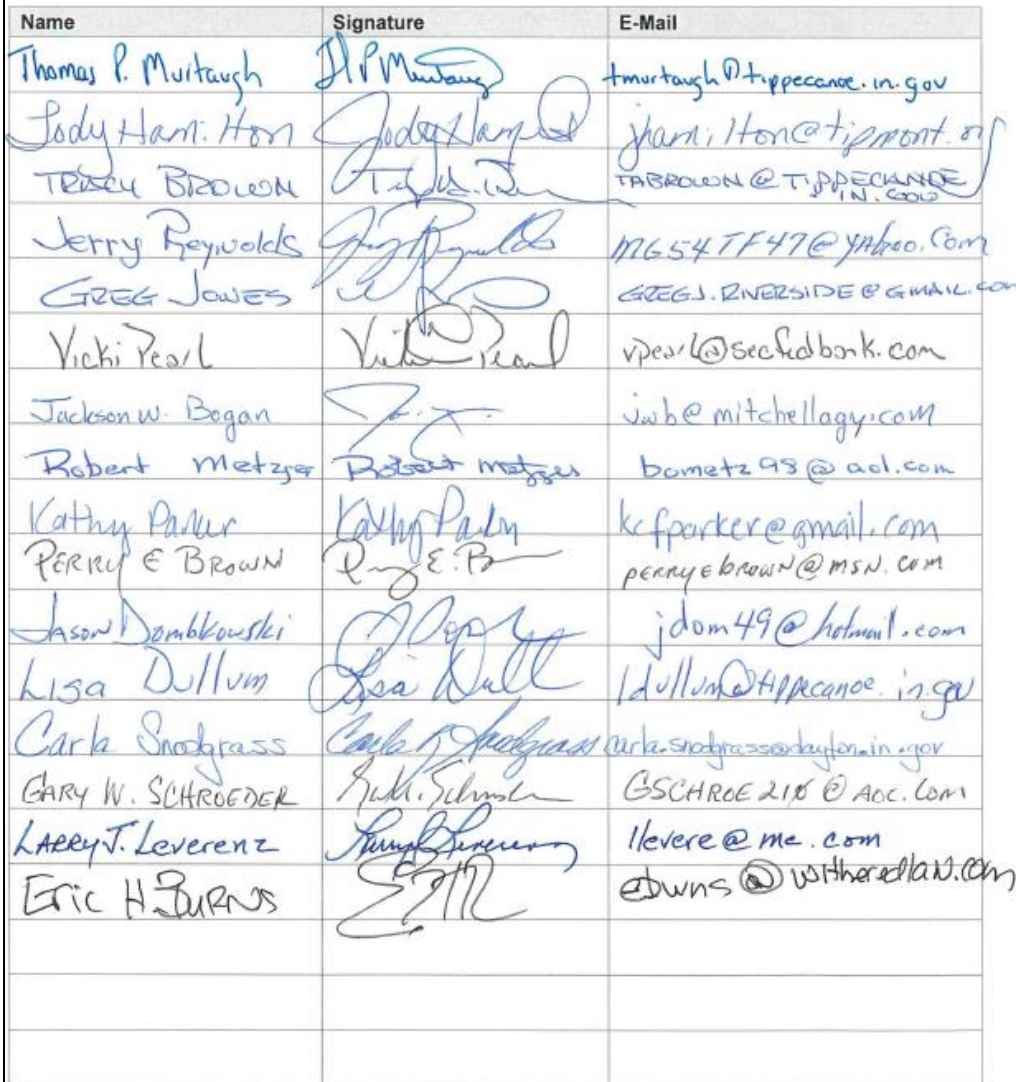 Name Signature E-Mail
Thomas P. Murtaugh tmurtaugh@tippecanoe.in.gov
Jody Hamilton Jody Hamilton jhamilton@tipmont.org
TRACY BROWN TABROWN@TIPPECANOE
IN.GOV
Jerry Reynolds Jerry Reynolds MG54TF47@YAhoo.Com
GREG JONES GREGJ.RIVERSIDE@GMAIL.COM
Vicki Pearl Vicki Pearl vpearl@secfedbank.com
Jackson W. Bogan jwb@mitchellagy.com
Robert Metzger Robert Metzger bometz98@aol.com
Kathy Parker Kathy Parker kcfparker@gmail.com
PERRY E BROWN perryebrown@msn.com
Jason Dombkowski jdom49@hotmail.com
Lisa Dullum Lisa Dull ldullum@tippecanoe.in.gov
Carla Snodgrass Carla R Snodgrass carla.snodgrass@dayton.in.gov
GARY W. SCHROEDER GSCHROE210@AOL.Com
LARRY J. Leverenz llevere@me.com
Eric H. BURNS eburns@witheredlaw.com